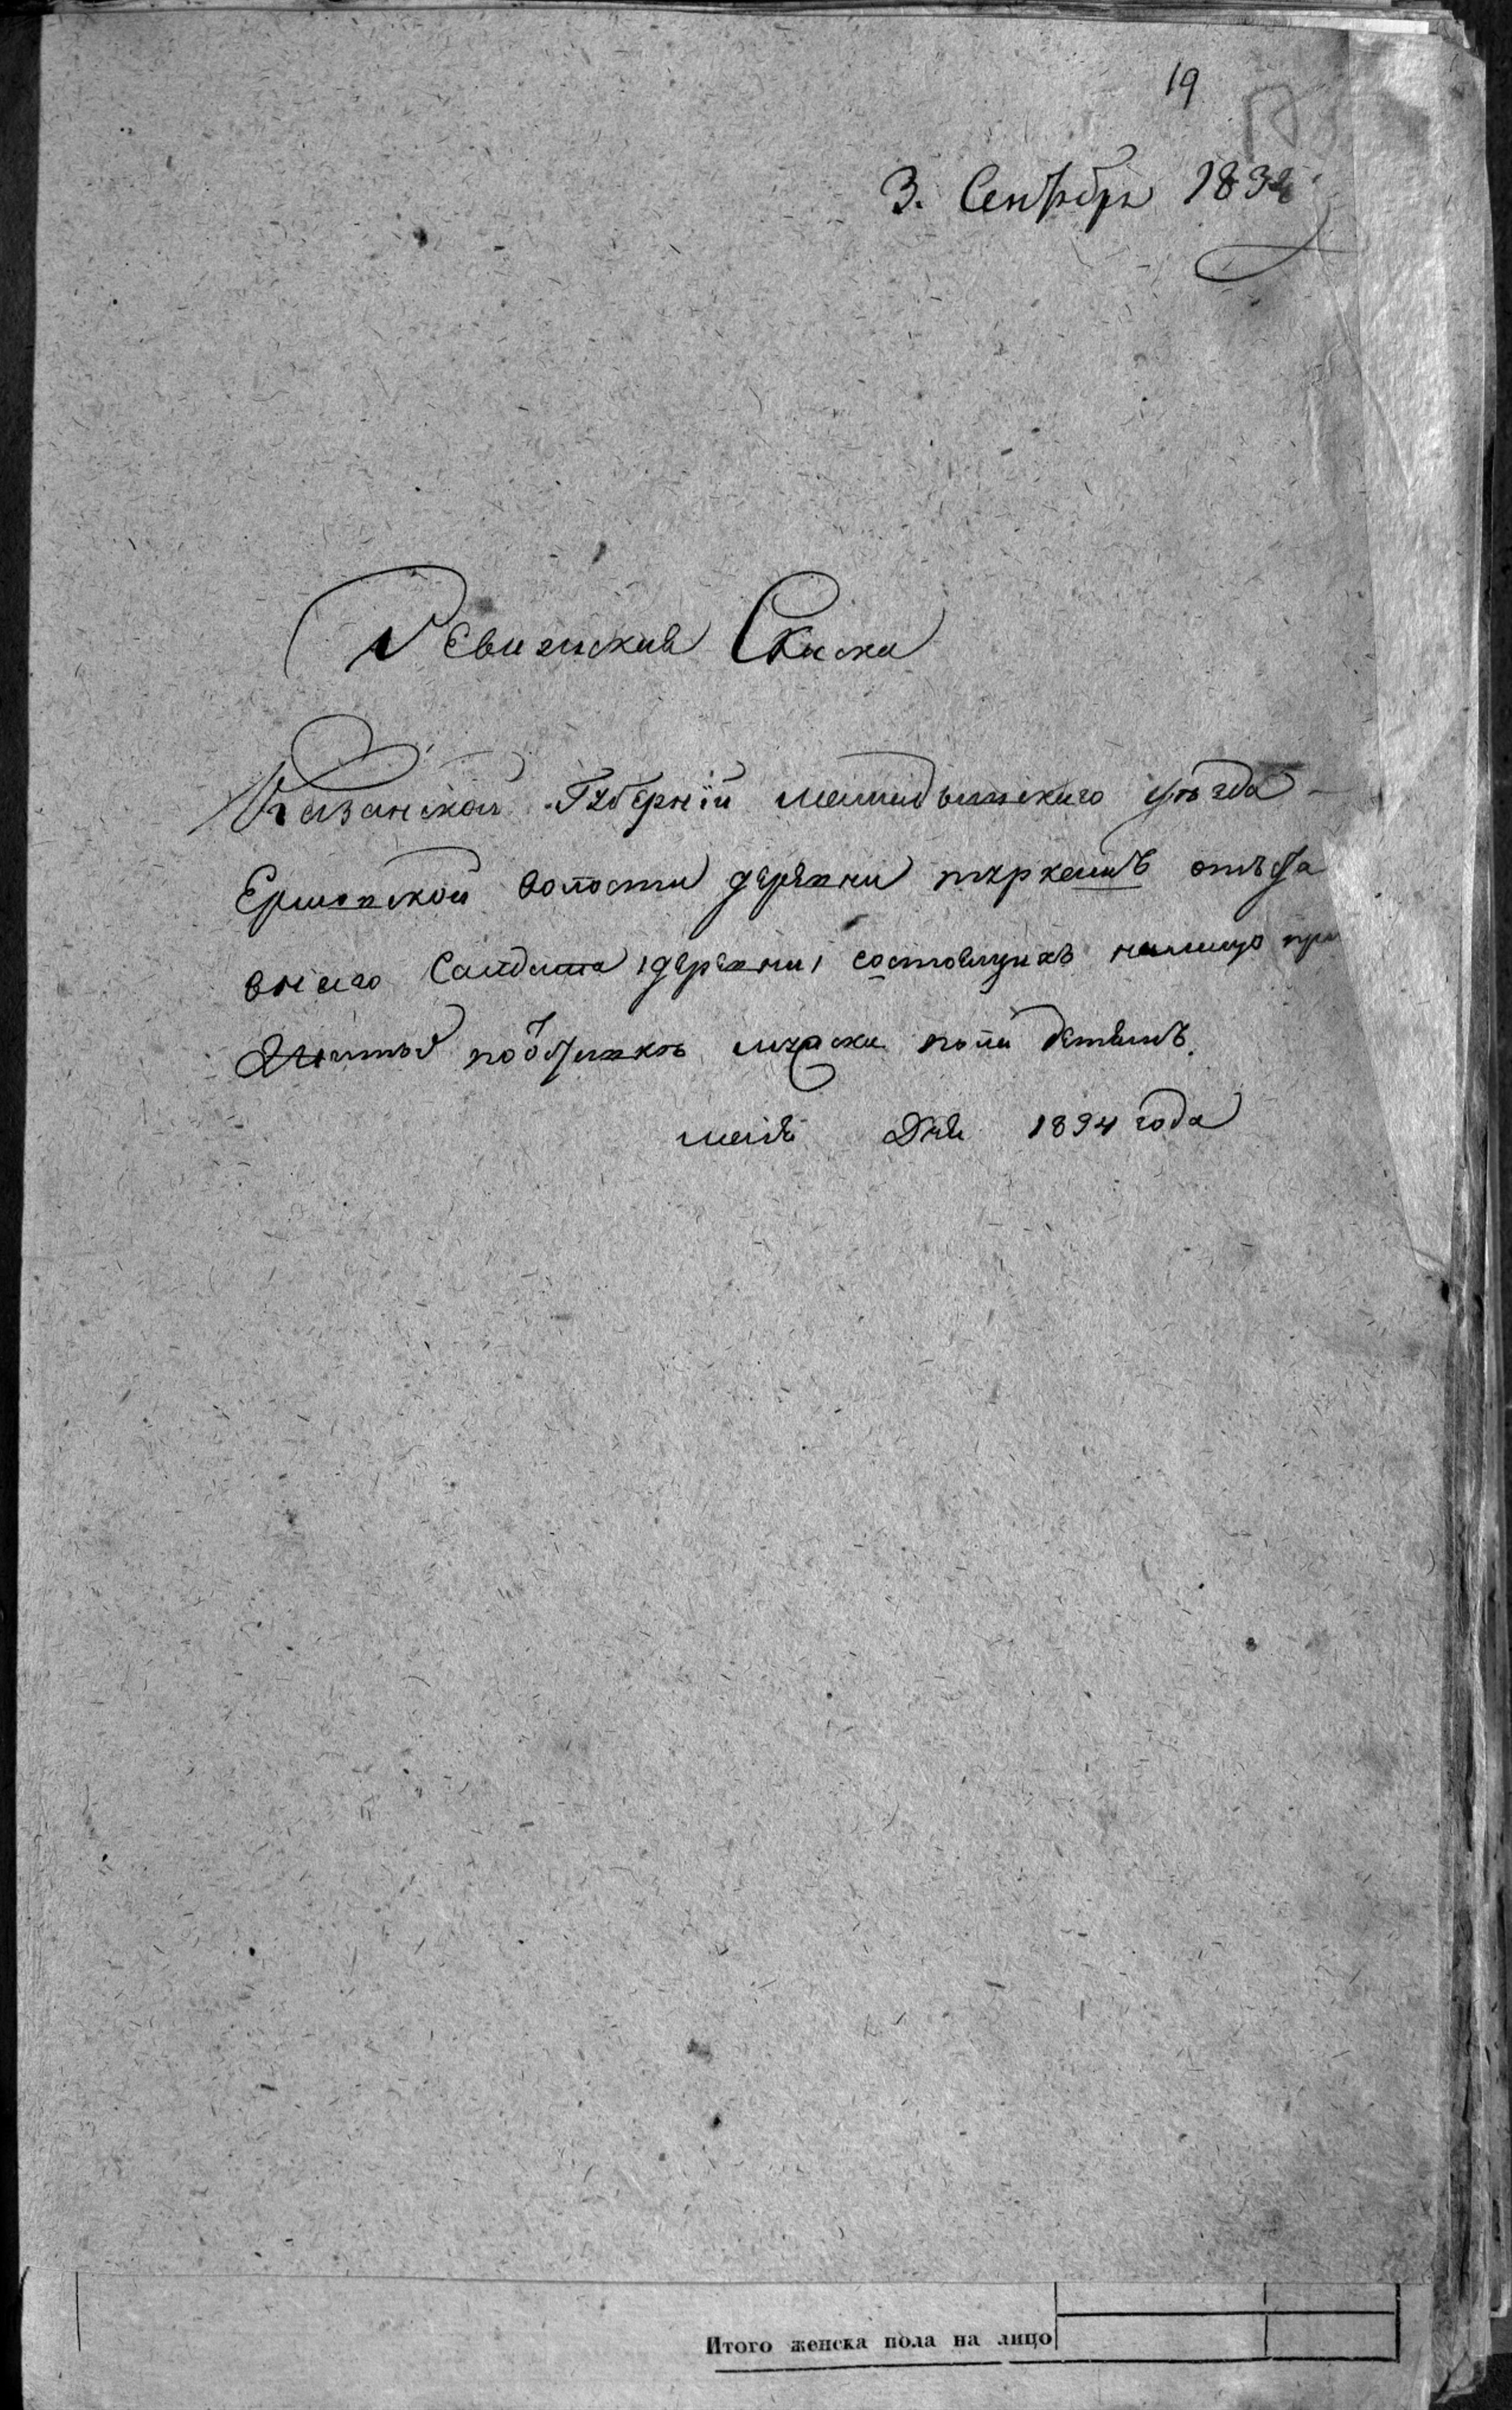 19
3. Сентября 1834
Ревизская Сказка
Казанской Губернїи мамадышскаго уѣзда
Ершовской волости деревни тюркешъ отъста
внаго Салдата деревни состоящихъ налицо при
подушкъ мужска пола детямъ.
маія Дня 1834 года
Итого женска пола на лицо